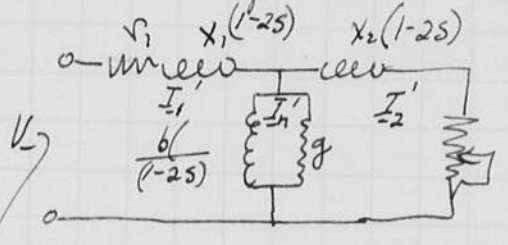 r₁ x₁(1-2s) x₂(1-2s)
I₁' Iₙ' I₂'
V b/(1-2s) g